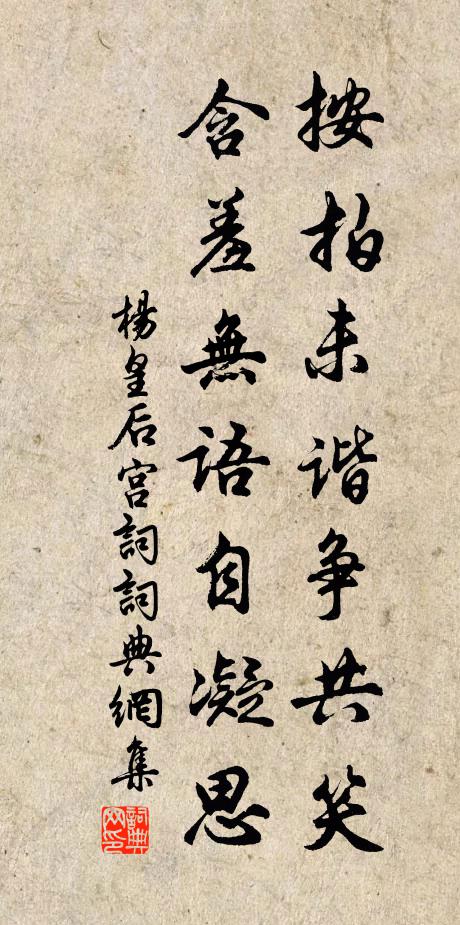 按拍未谐争共笑
含羞無語自凝思
楊皇后宫詞詞典網集
詞典网印